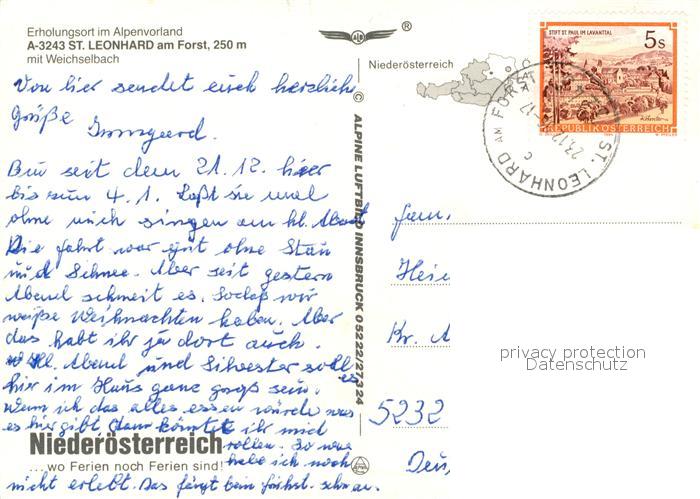 Erholungsort im Alpenvorland
A-3243 ST. LEONHARD am Forst, 250 m
mit Weichselbach
®
Niederösterreich
STIFT ST. PAUL IM LAVANTTAL
5s
REPUBLIK ÖSTERREICH
ST. LEONHARD AM FORST
© ALPINE LUFTBILD INNSBRUCK 05222/27324
Von hier sendet euch herzliche
Grüße
Irmgard.
Bin seit dem 21.12. hier
bis zum 4.1. Laßt sie mal
ohne mich singen am hl. Abend
Die fahrt war gut ohne Stau
und Schnee. Aber seit gestern
Abend schneit es. Sodaß wir
weiße Weihnachten haben. Aber
das habt ihr ja dort auch.
Hl. Abend und Silvester soll es
hier im Haus ganz groß sein.
Wenn ich das alles essen würde was
es hier gibt dann könntet ihr mich
rollen. So was
habe ich noch
nicht erlebt. Das fängt beim frühst. schon an.
Niederösterreich
...wo Ferien noch Ferien sind!
Fam.
Kr.
5232
privacy protection
Datenschutz